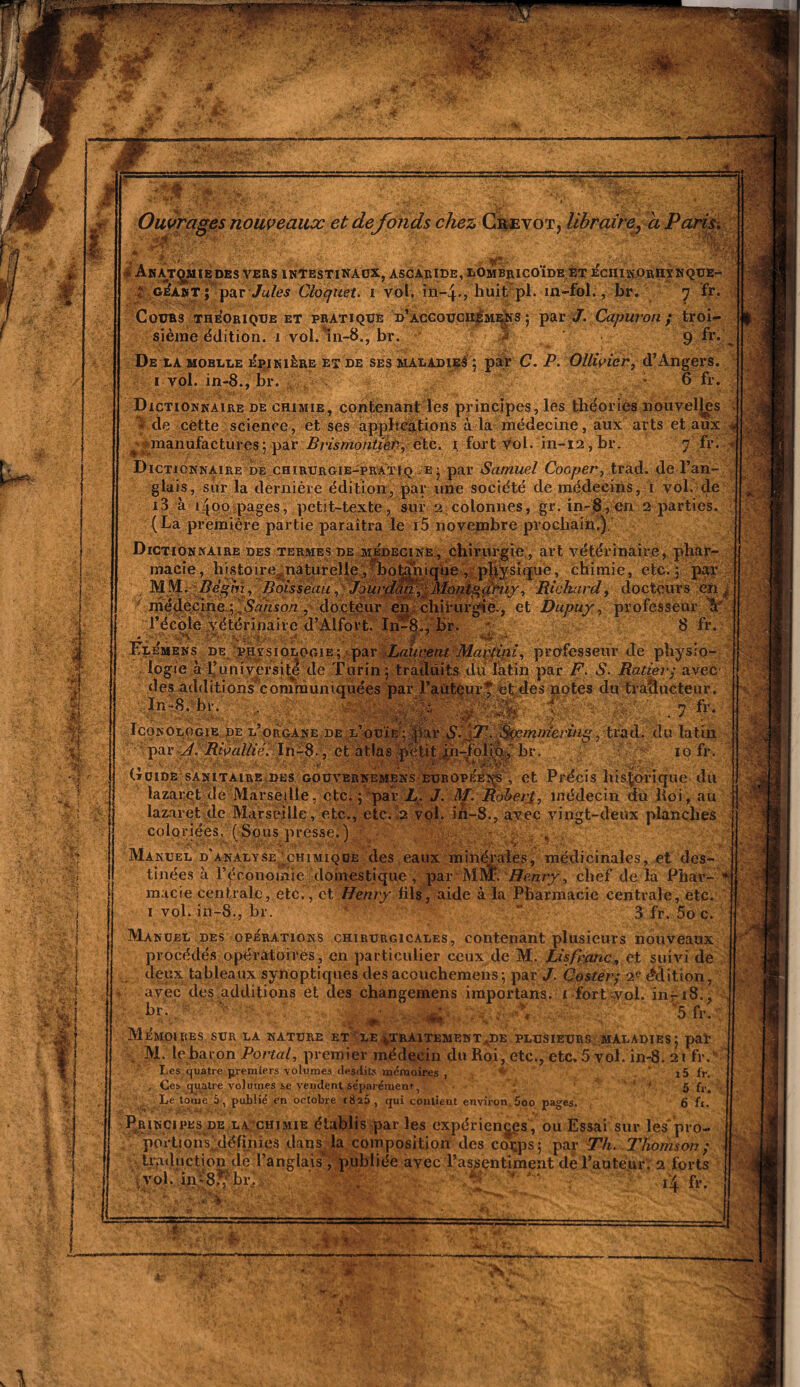 Ouvrages nouveaux et de fonds chez Crevot, libraire, à Paris.
Anatomie des vers intestinaux, ascaride, lombricoïde et échinorhynque-
géant; par Jules Cloquet. 1 vol. in-4., huit pl. in-fol., br. 7 fr.
Cours théorique et pratique d'accouchemens; par J. Capuron; troi-
sième édition. 1 vol. in-8., br. 9 fr.
De la moelle épinière et de ses maladies; par C. P. Ollivier, d'Angers.
1 vol. in-8., br. 6 fr.
Dictionnaire de chimie, contenant les principes, les théories nouvelles
de cette science, et ses applications à la médecine, aux arts et aux
manufactures; par Brismontier, etc. 1 fort vol. in-12, br. 7 fr.
Dictionnaire de chirurgie-pratiq e; par Samuel Cooper, trad. de l'an-
glais, sur la dernière édition, par une société de médecins, 1 vol. de
13 à 1400 pages, petit-texte, sur 2 colonnes, gr. in-8, en 2 parties.
(La première partie paraîtra le 15 novembre prochain.)
Dictionnaire des termes de médecine, chirurgie, art vétérinaire, phar-
macie, histoire naturelle, botanique, physique, chimie, etc.; par
MM. Bégin, Boisseau, Jourdan, Montgarny, Richard, docteurs en
médecine; Sanson, docteur en chirurgie., et Dupuy, professeur à
l'école vétérinaire d'Alfort. In-8., br. 8 fr.
Élémens de physiologie; par Laurent Martini, professeur de physio-
logie à l'université de Turin; traduits du latin par F. S. Ratier; avec
des additions communiquées par l'auteur, et des notes du traducteur.
In-8. br. 7 fr.
Iconologie de l'organe de l'ouïe; par S. T. Sœmmering, trad. du latin
par A. Rivallié. In-8., et atlas petit in-folio, br. 10 fr.
Guide sanitaire des gouvernemens européens, et Précis historique du
lazaret de Marseille, etc.; par L. J. M. Robert, médecin du Roi, au
lazaret de Marseille, etc., etc. 2 vol. in-8., avec vingt-deux planches
coloriées. (Sous presse.)
Manuel d'analyse chimique des eaux minérales, médicinales, et des-
tinées à l'économie domestique, par MM. Henry, chef de la Phar-
macie centrale, etc., et Henry fils, aide à la Pharmacie centrale, etc.
1 vol. in-8., br. 3 fr. 50 c.
Manuel des opérations chirurgicales, contenant plusieurs nouveaux
procédés opératoires, en particulier ceux de M. Lisfranc, et suivi de
deux tableaux synoptiques des acouchemens; par J. Coster; 2e édition,
avec des additions et des changemens importans. 1 fort vol. in-18.,
br. 5 fr.
Mémoires sur la nature et le traitement de plusieurs maladies; par
M. le baron Portal, premier médecin du Roi, etc., etc. 5 vol. in-8. 21 fr.
Les quatre premiers volumes desdits mémoires, 15 fr.
Ces quatre volumes se vendent séparément, 5 fr.
Le tome 5, publié en octobre 1825, qui contient environ 500 pages. 6 fr.
Principes de la chimie établis par les expériences, ou Essai sur les pro-
portions définies dans la composition des corps; par Th. Thomson;
traduction de l'anglais, publiée avec l'assentiment de l'auteur. 2 forts
vol. in-8., br. 14 fr.